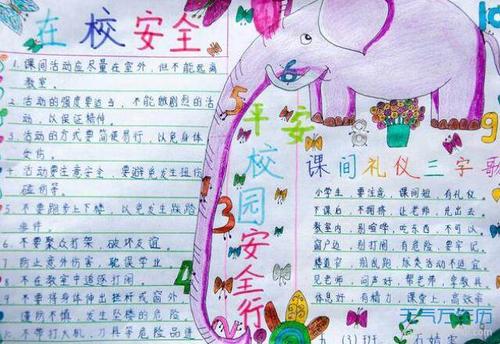 在校安全
1. 课间活动应尽量在室外，但不能远离
教室。
2. 活动的强度要适当，不能做剧烈的活
动，以保证精神。
3. 活动的方式要简便易行，以免身体
受伤。
4. 活动要注意安全，要避免发生扭伤
碰伤等。
5. 不要跑步上下楼，以免发生踩踏
事件。
6. 不要聚众打架，破坏友谊。
7. 防止意外伤害，耽误学业
8. 不在教室中追逐打闹
9. 不要将身体伸出栏杆或窗外
谨防不慎，发生坠楼的危险。
不带打火机、刀具等危险品进
平安
校园安全行
5
3
4
6
9
课间礼仪三字歌
小学生，要注意，课间短，有礼仪。
下课后，不拥挤，让老师，先出去
教室内，别喧哗，吃东西，不可以
窗户边，别打闹，有危险，要牢记。
楼道窄，别乱跑，
见老师，问声好，帮老师，拿教具
休息好，有精力，课堂上，高效率
(3)班
天气万年历